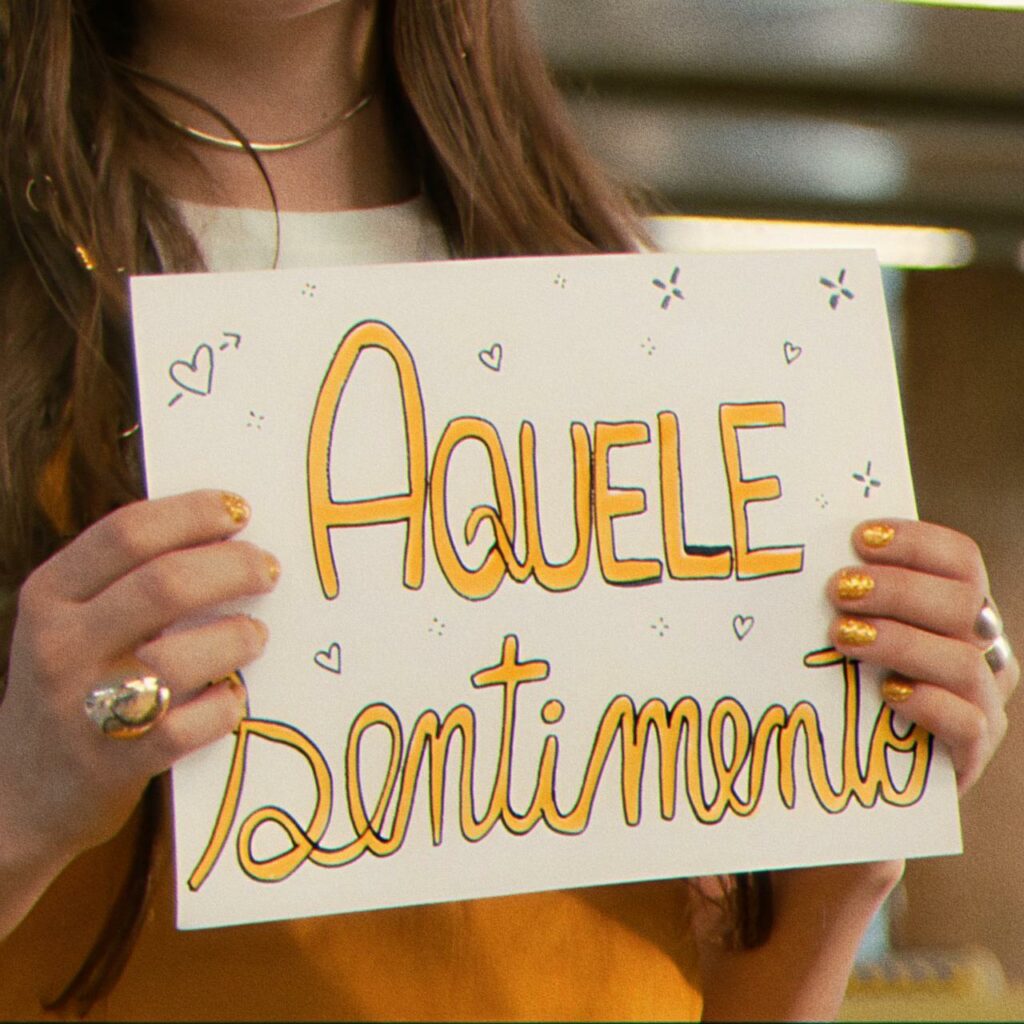 AQUELE
sentimento